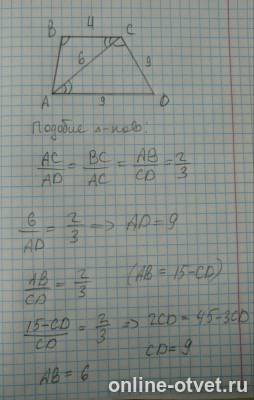 B 4 C
6 9
A 9 D
Подобие Δ-ков:
AC/AD = BC/AC = AB/CD = 2/3
6/AD = 2/3 => AD = 9
AB/CD = 2/3 (AB = 15-CD)
15-CD/CD = 2/3 => 2CD = 45-3CD
CD = 9
AB = 6
online-otvet.ru